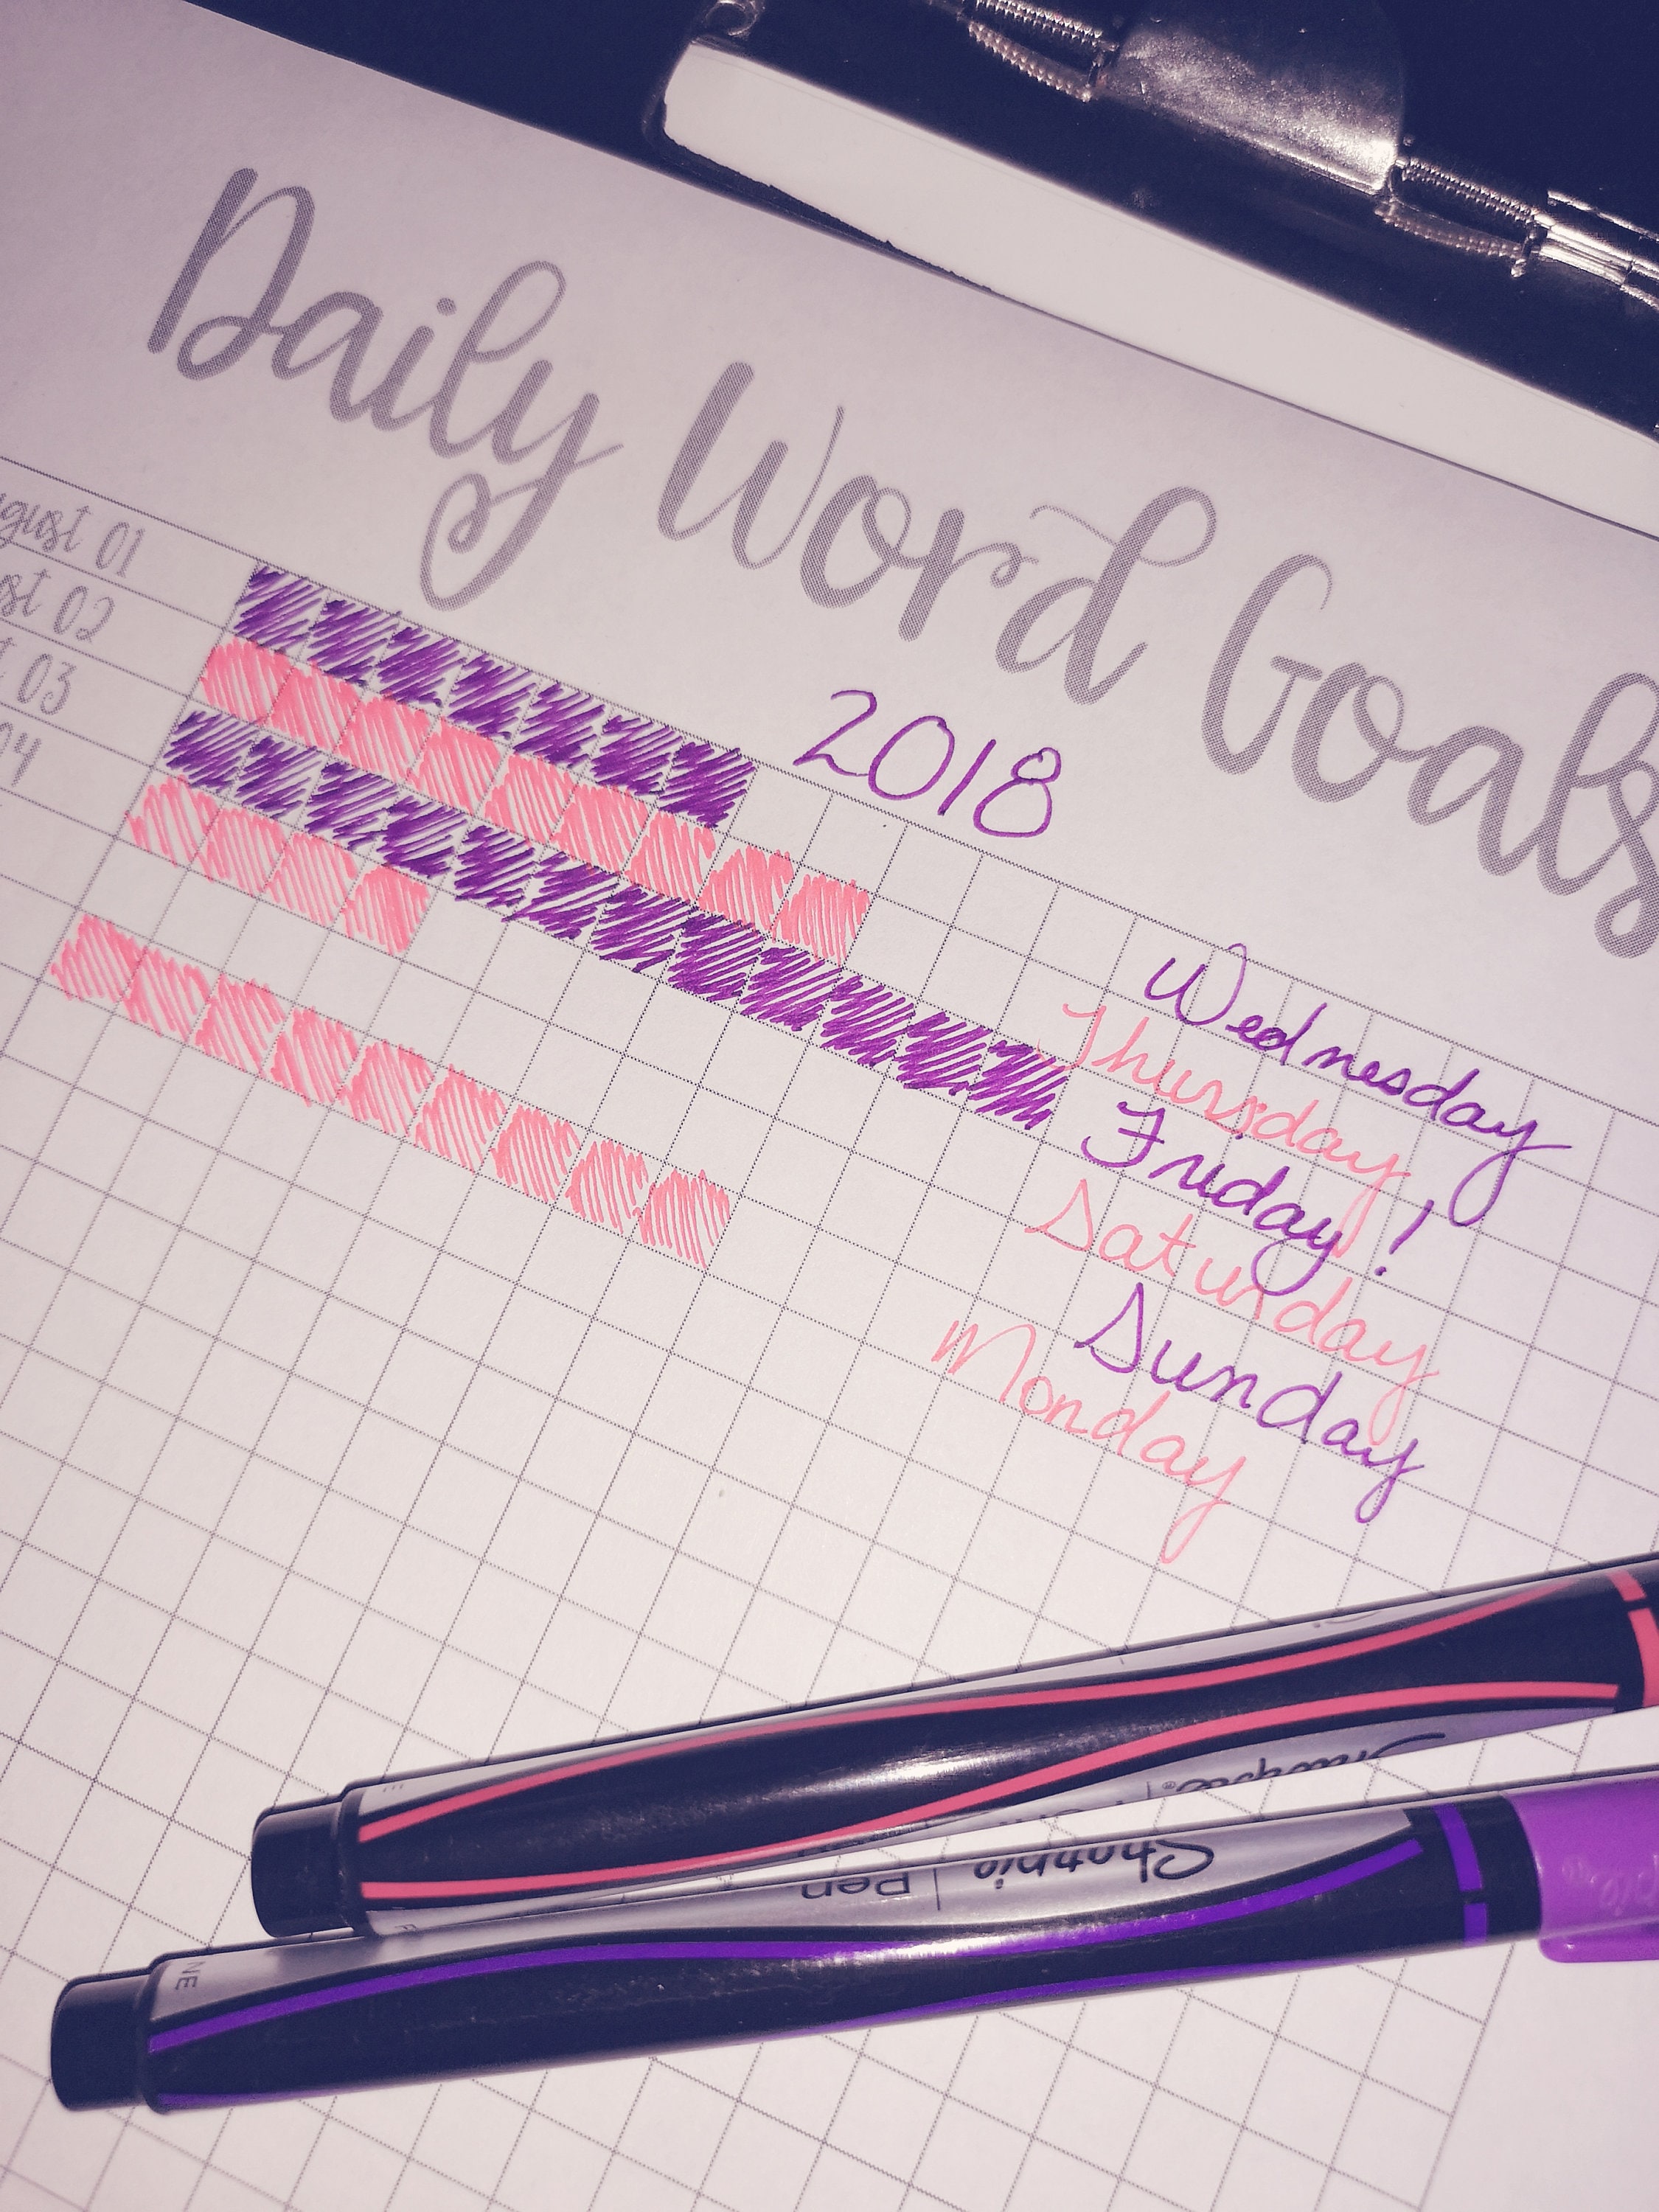 Daily Word Goals
2018
August 01
August 02
03
04
Wednesday
Thursday
Friday!
Saturday
Sunday
Monday
Sharpie
Sharpie | Pen
NE